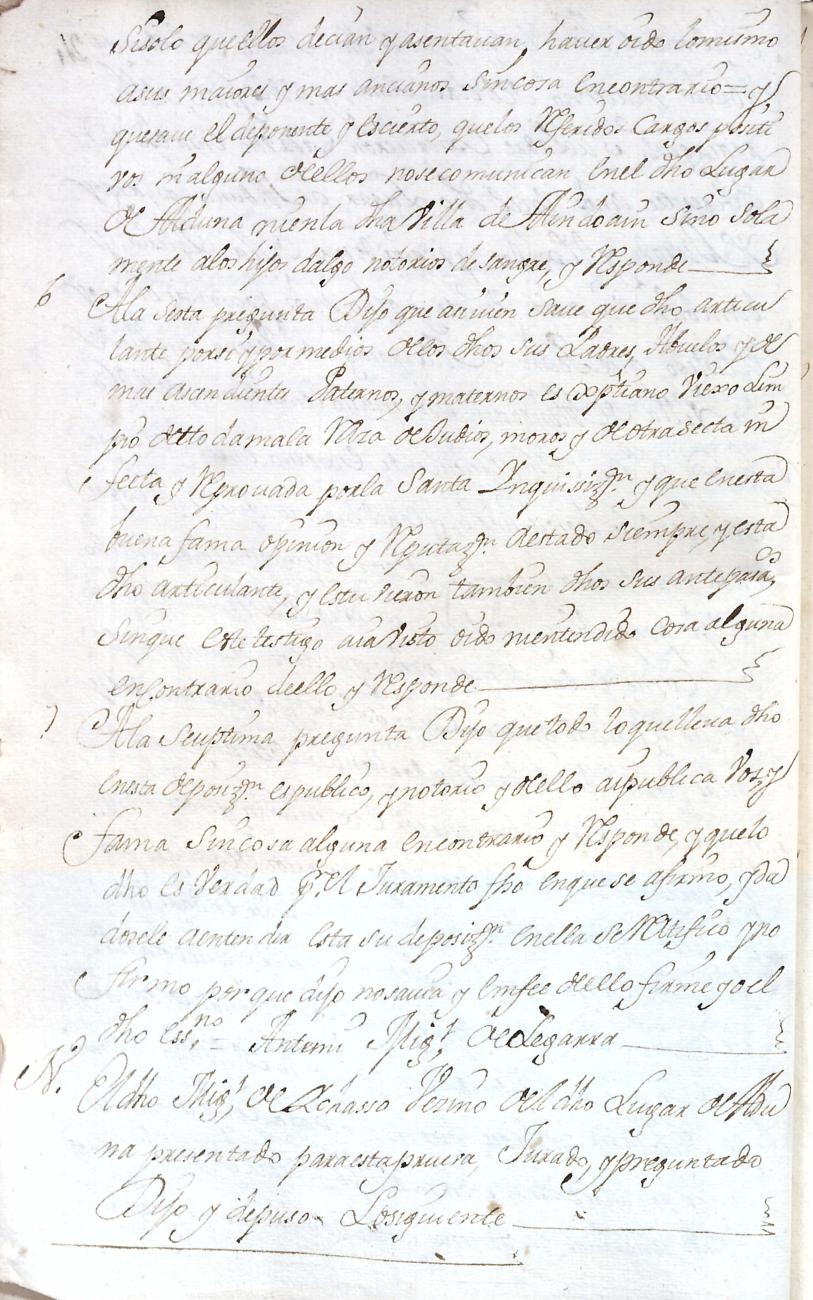 Sisolo quellos decian y asentavan, haver oido lo mismo
asus maiores y mas ancianos sin cosa en contrario = y
que save el deponente y es cierto, que los referidos Cargos positi
vos ni alguno de ellos no se comunican en el dho Lugar
de Alduna ni en la dha villa de Aindoain sino sola
mente a los hijos dalgo notorios de sangre, y Responde
6 A la sesta pregunta Dijo que asi vien save que dho articu
lante, por si y por medios de los dhos sus Padres, Abuelos y de
mas ascendientes Paternos, y maternos es Xptiano Viexo Lim
pio de toda mala Raza de Judios, moros y de otra secta in
fecta y Reprovada por la Santa Ynquisizn. y que en esta
buena fama opinion y Reputazn. a estado siempre, y esta
dho articulante, y estuvieron tambien dhos sus antepasados
sin que este testigo aia visto oido ni entendido cosa alguna
en contrario de ello y Responde
7 A la Septima pregunta Dijo que todo lo que lleva dho
en esta deposizn. es publico, y notorio y de ello ai publica Voz, y
fama sin cosa alguna en contrario y Responde, y que lo
dho es Verdad pr. el Juramento fho en que se afirmo, y da
dosele a entender esta su deposizn. en ella se Ratifico y no
firmo por que dijo no savia y en fee de ello firme yo el
dho essno. = Antemi Migl. de Legarra
El dho Migl. de Echasso Vezino del dho Lugar de Aldu
na presentado para esta prueva, Jurado, y preguntado
Dijo y depuso Lo siguiente